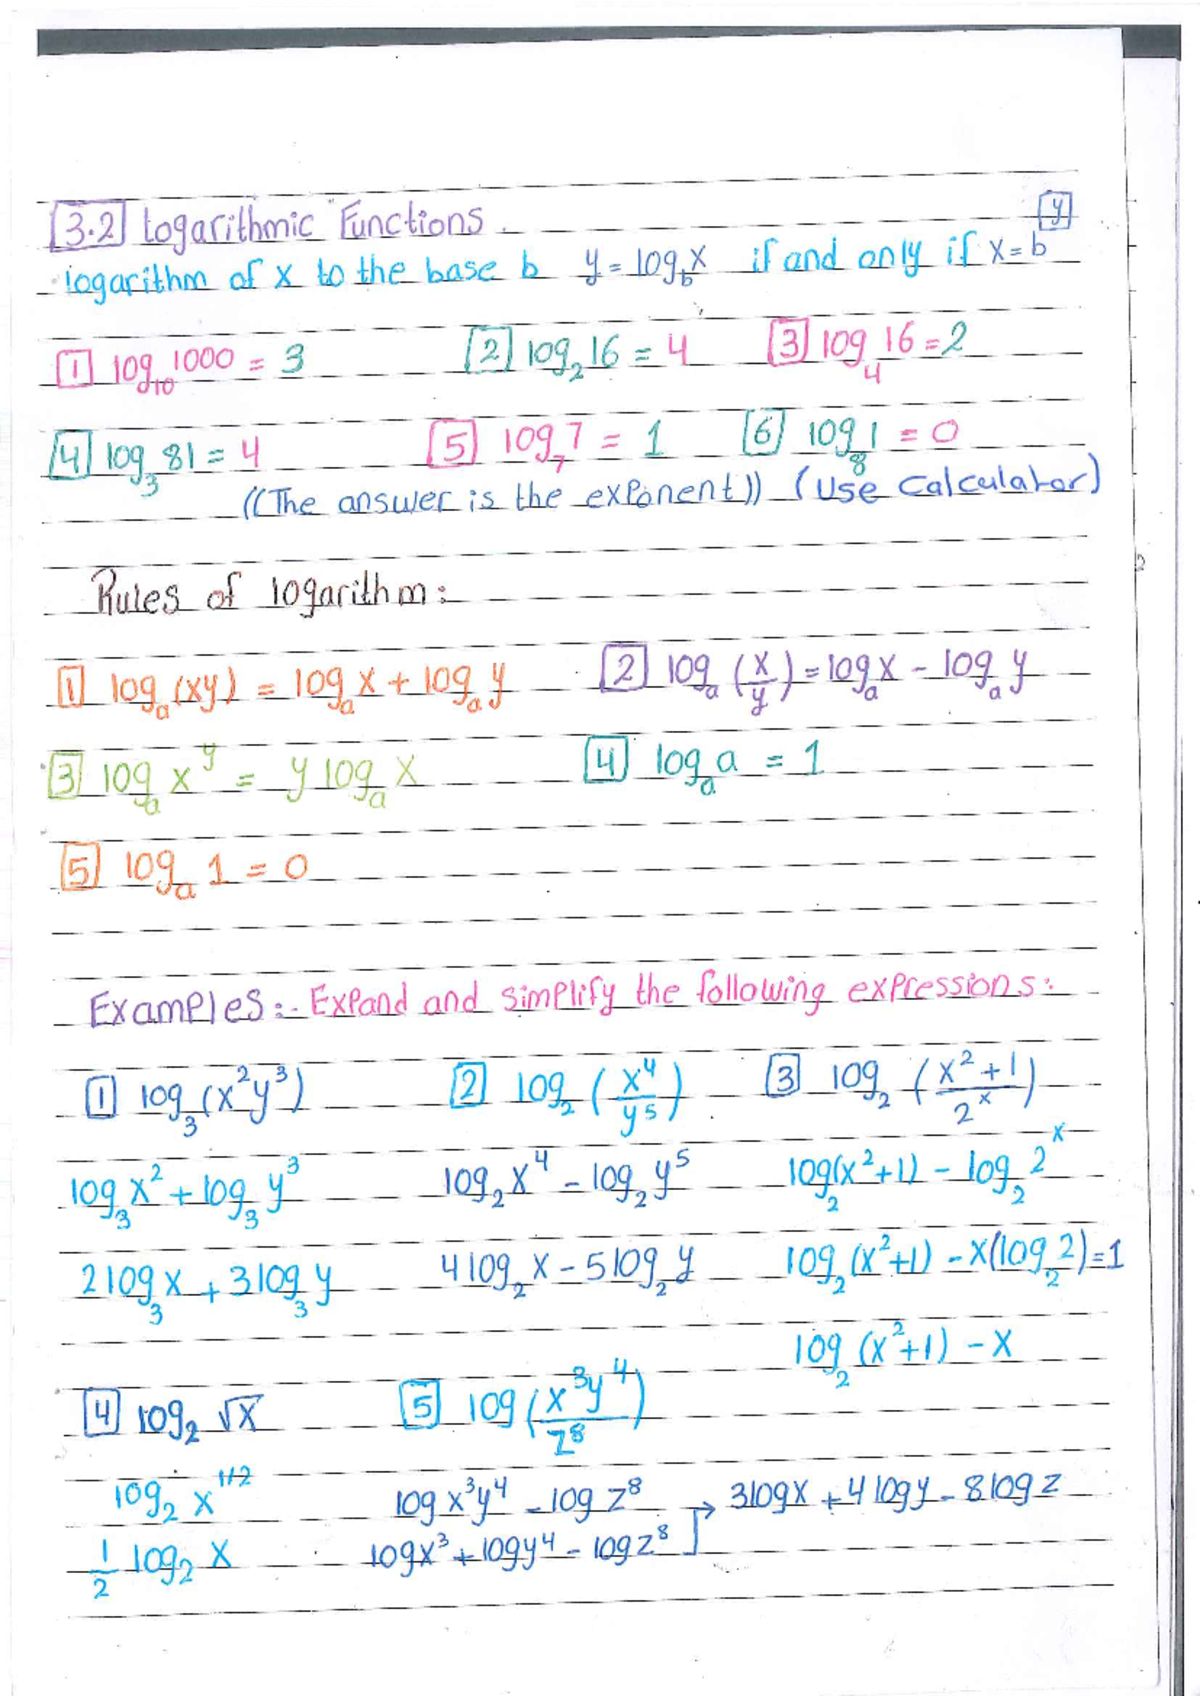 [3.2] Logarithmic Functions.
logarithm of x to the base b y = log_b x if and only if x = b^[y]
[1] log_10 1000 = 3 [2] log_2 16 = 4 [3] log_4 16 = 2
[4] log_3 81 = 4 [5] log_7 7 = 1 [6] log_8 1 = 0
((The answer is the exponent)) (Use Calculator)
Rules of logarithm:
[1] log_a (xy) = log_a x + log_a y [2] log_a (x/y) = log_a x - log_a y
[3] log_a x^y = y log_a x [4] log_a a = 1
[5] log_a 1 = 0
Examples:- Expand and simplify the following expressions:
[1] log_3 (x^2 y^3) [2] log_2 (x^4/y^5) [3] log_2 (x^2+1/2^x)
log_3 x^2 + log_3 y^3 log_2 x^4 - log_2 y^5 log_2 (x^2+1) - log_2 2^x
2 log_3 x + 3 log_3 y 4 log_2 x - 5 log_2 y log_2 (x^2+1) - x(log_2 2)=1
log_2 (x^2+1) - x
[4] log_2 √x [5] log (x^3 y^4/z^8)
log_2 x^1/2 log x^3 y^4 - log z^8 → 3 log x + 4 log y - 8 log z
1/2 log_2 x log x^3 + log y^4 - log z^8